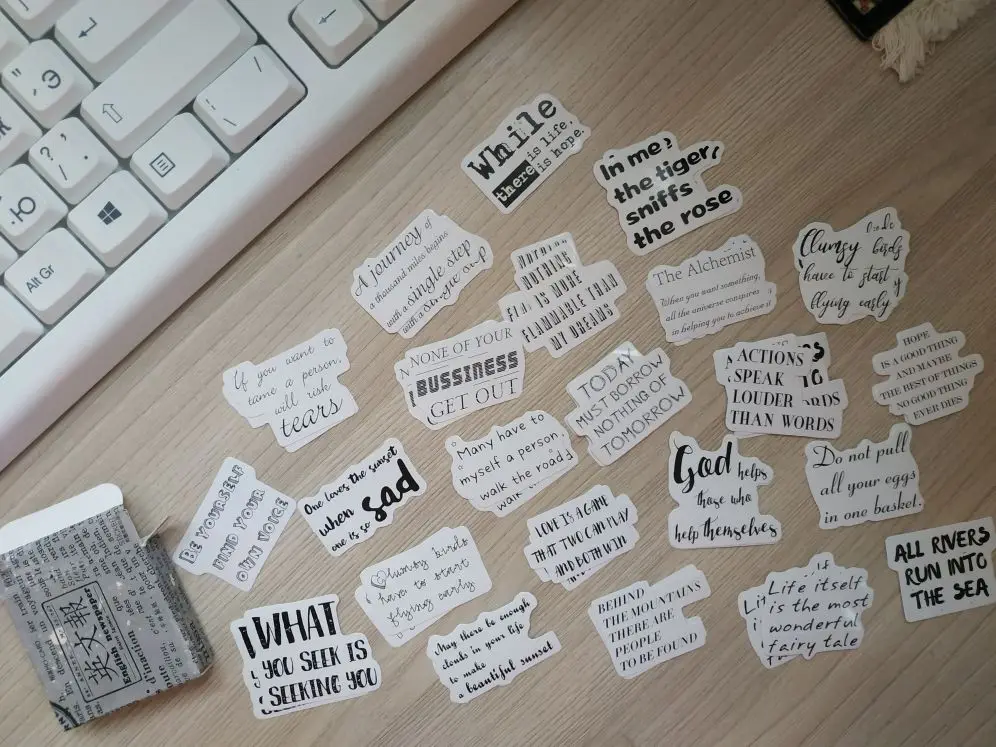 Э
Ж
?
/
.
,
Ю
Alt Gr
/
While
there is life,
is hope.
In me
the tiger
sniffs
the rose
A journey of
a thousand miles begins
with a single step
NOTHING
NOTHING
IS MORE
FLAMMABLE THAN
MY DREAMS
The Alchemist
When you want something,
all the universe conspires
in helping you to achieve it
Clumsy birds
have to start
flying early
If you want to
tame a person,
will risk
tears
NONE OF YOUR
BUSSINESS
GET OUT
TODAY
MUST BORROW
NOTHING OF
TOMORROW
ACTIONS
SPEAK
LOUDER
THAN WORDS
HOPE
IS A GOOD THING
AND MAYBE
THE BEST OF THINGS
NO GOOD THING
EVER DIES
BE YOURSELF
FIND YOUR
OWN VOICE
One loves the sunset
when
one is so sad
Many have to
myself a person,
walk the road
walk
God helps
those who
help themselves
Do not pull
all your eggs
in one basket.
LOVE IS A GAME
THAT TWO CAN PLAY
AND BOTH WIN
Clumsy birds
have to start
flying early
ALL RIVERS
RUN INTO
THE SEA
WHAT
YOU SEEK IS
SEEKING YOU
May there be enough
clouds in your life
to make
a beautiful sunset
BEHIND
THE MOUNTAINS
THERE ARE
PEOPLE
TO BE FOUND
Life itself
is the most
wonderful
fairy tale
英文報
English newspaper